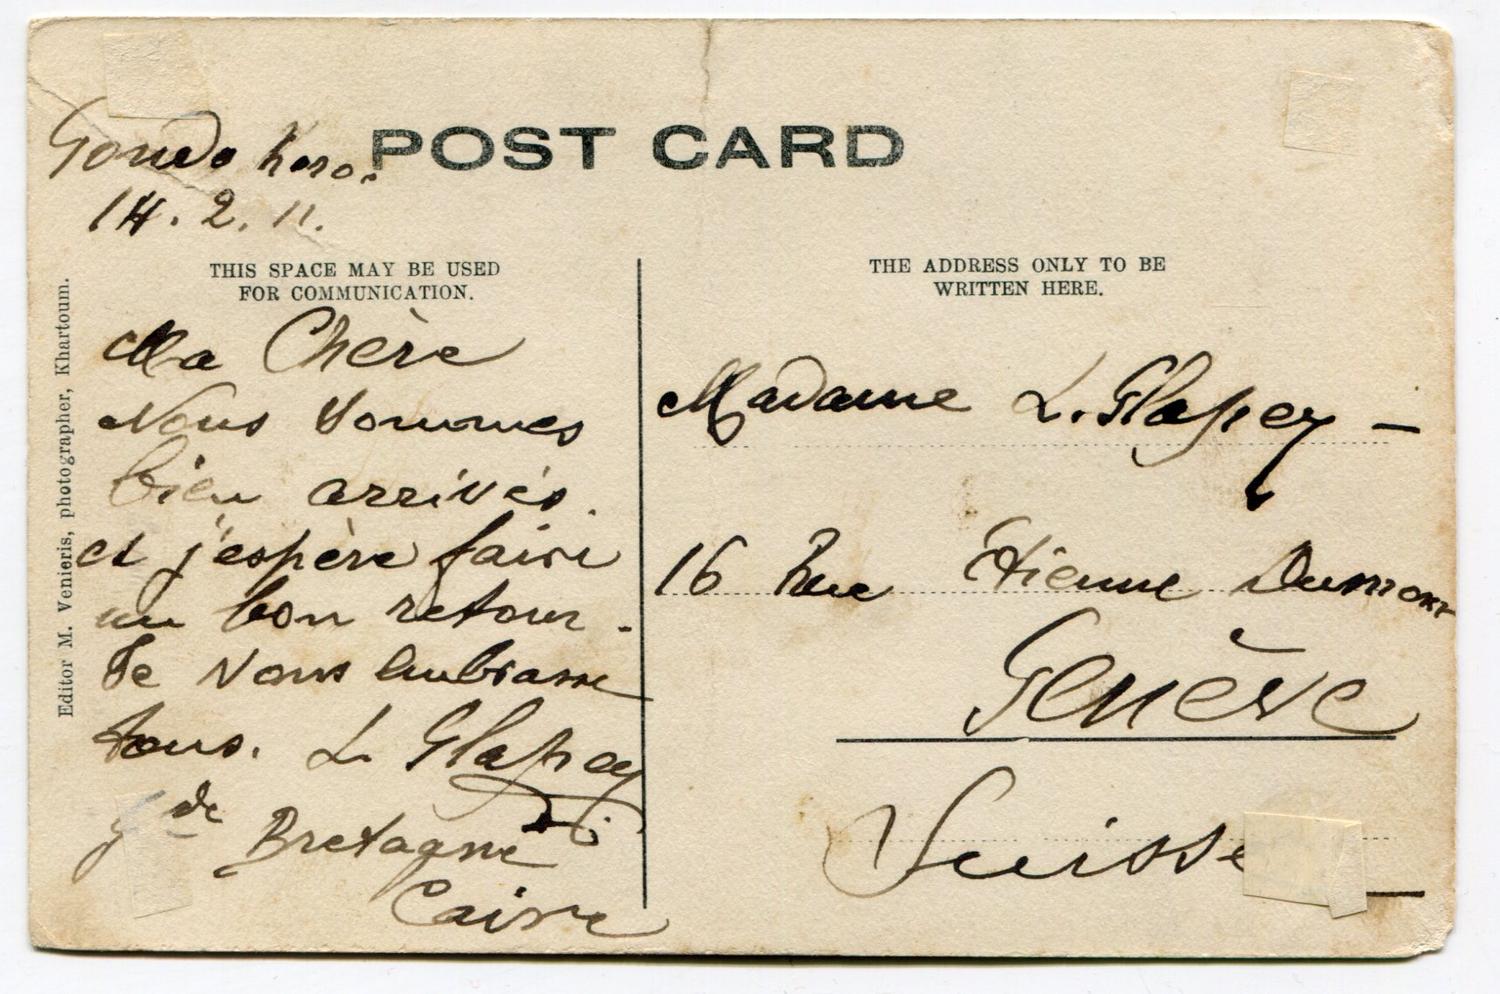 POST CARD
Gondokoro.
14. 2. 11.
THIS SPACE MAY BE USED
FOR COMMUNICATION.
Ma Chère
Nous sommes
bien arrivés.
et j'espère faire
un bon retour.
Je vous embrasse
tous. L. Glapey
Gde Bretagne
Caire
THE ADDRESS ONLY TO BE
WRITTEN HERE.
Madame L. Glapey —
16 Rue Etienne Dumont
Genève
Suisse
Editor M. Venieris, photographer, Khartoum.